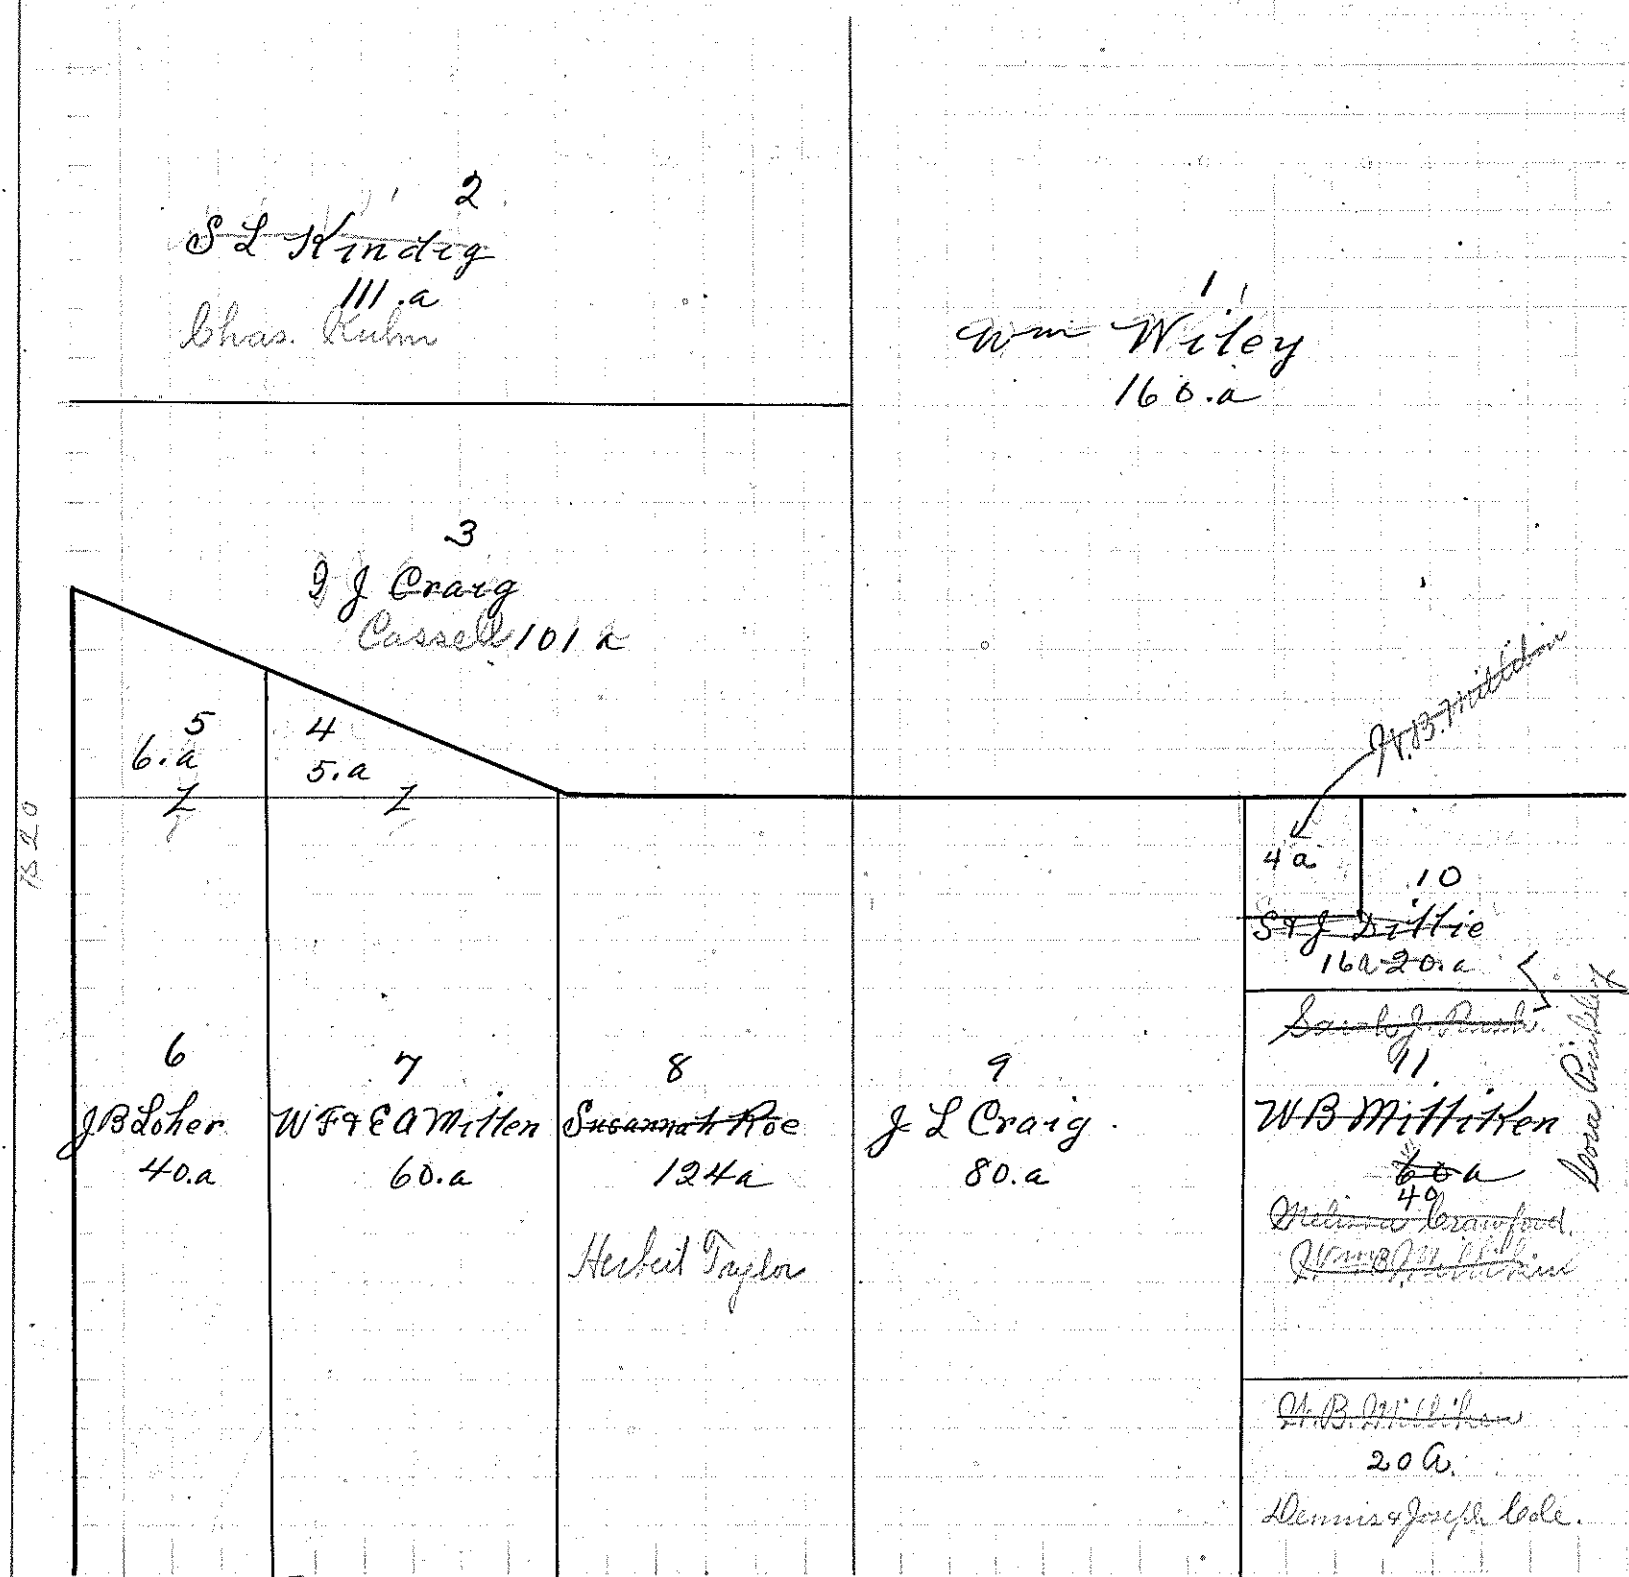 2
S L Kindig
111.a
Chas. Kuhn
1
Wm Wiley
160.a
3
J Craig
Cassell 101 a
W.B. Milliken
5
6.a
Z
4
5.a
Z
1820
4 a
10
S & J Dillie
16a 20.a
Sarah J. Rush.
6
J B Loher
40.a
7
W F & E A Millen
60.a
8
Susannah Roe
124a
Herbert Taylor
9
J L Craig
80.a
11.
W B Milliken
60 a
40
Melissa Crawford.
Cora
W.B. Milliken
20 A.
Dennis & Joseph Cole.